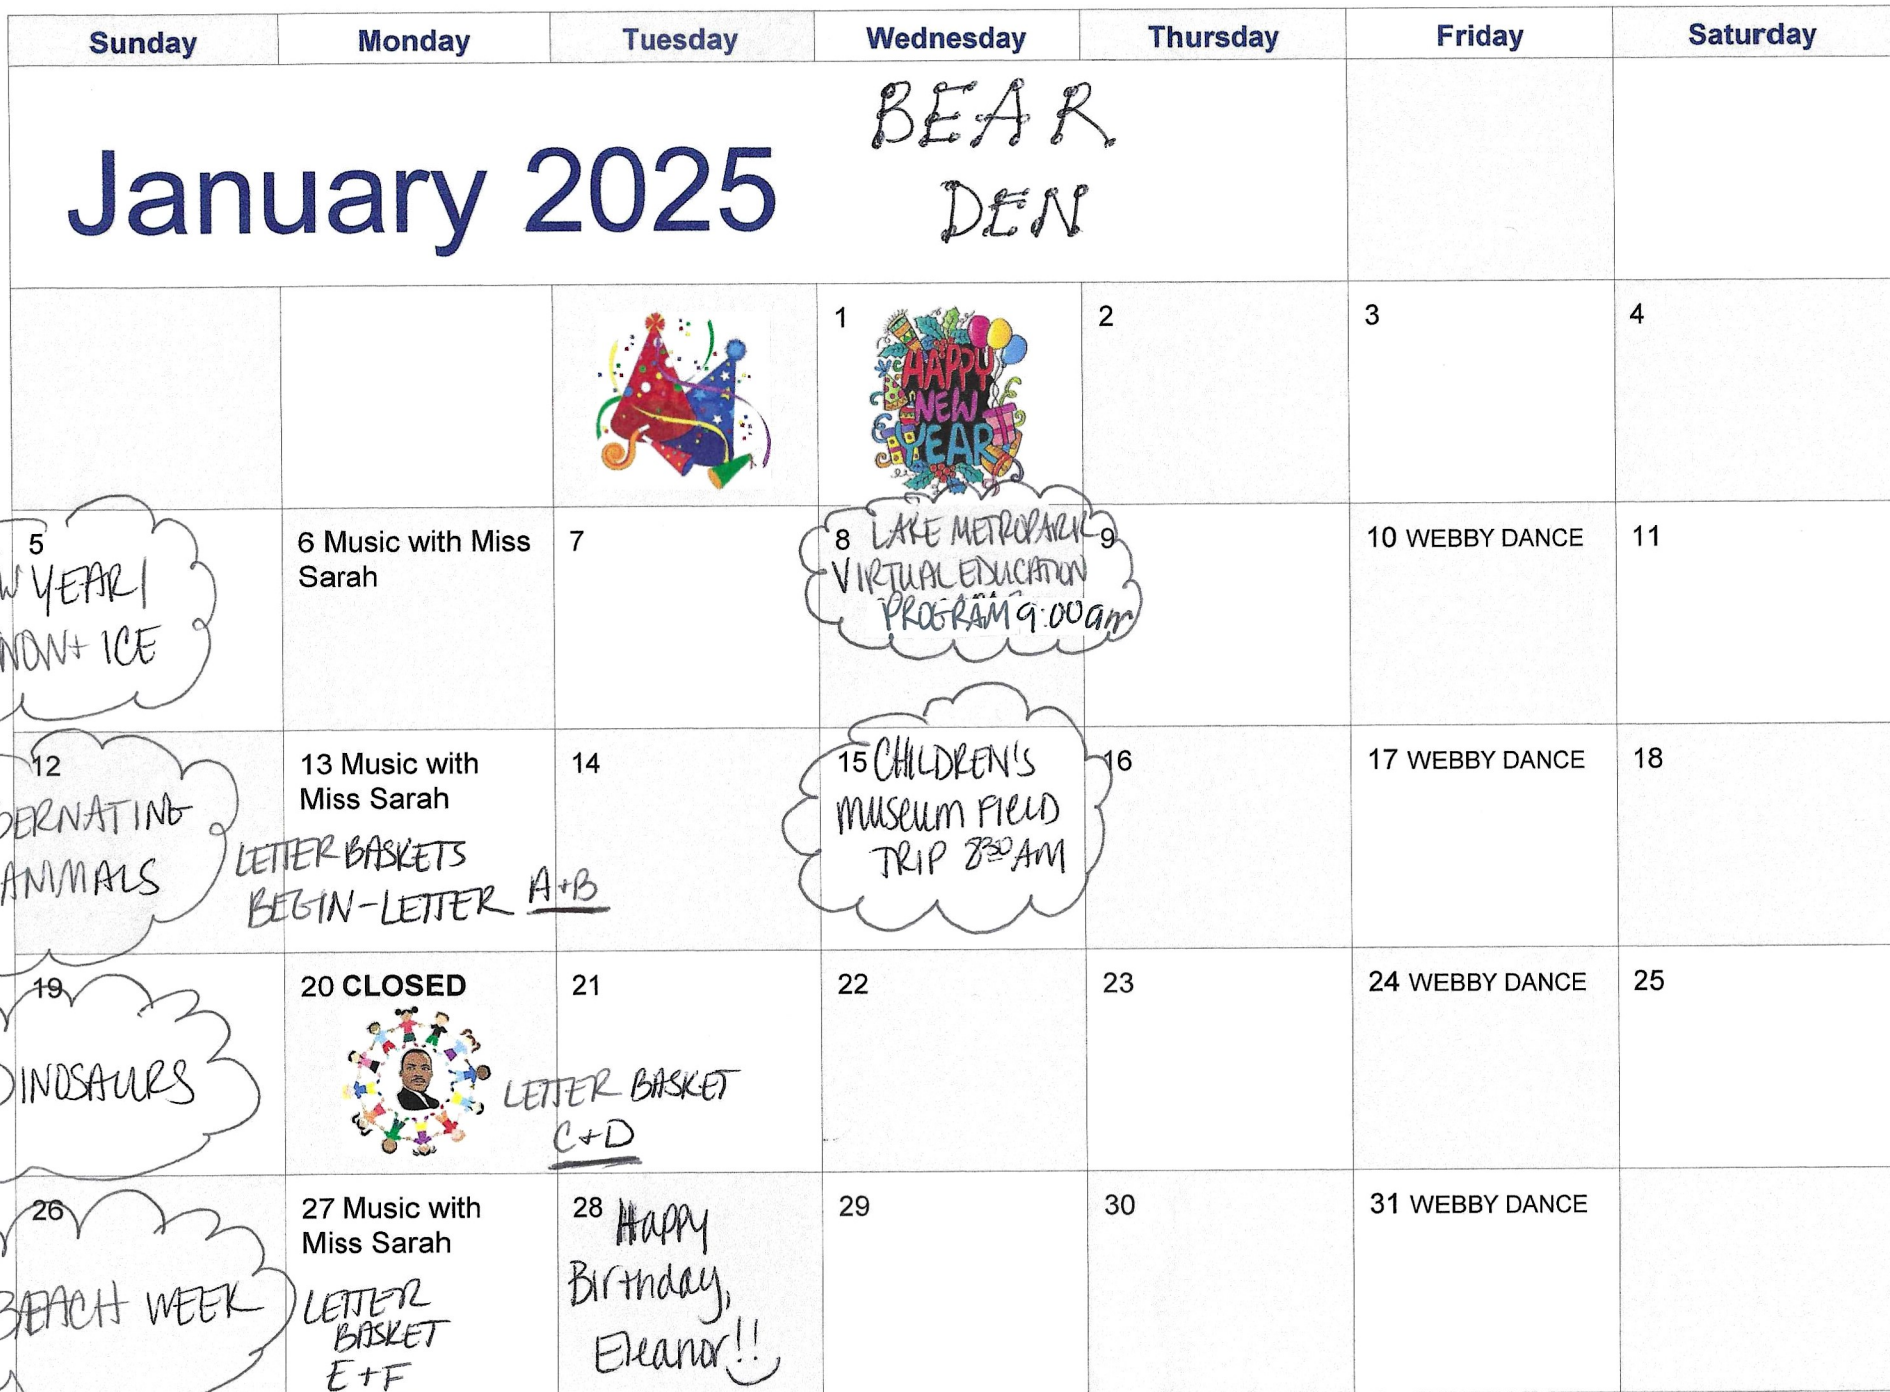 Sunday Monday Tuesday Wednesday Thursday Friday Saturday
January 2025
BEAR
DEN
1
HAPPY
NEW
YEAR
2
3
4
5
YEAR/
ICE
6 Music with Miss
Sarah
7
8 LAKE METROPARK
VIRTUAL EDUCATION
PROGRAM 9:00am
9
10 WEBBY DANCE
11
12
ANIMALS
13 Music with
Miss Sarah
LETTER BASKETS
BEGIN-LETTER A+B
14
15 CHILDREN'S
MUSEUM FIELD
TRIP 8:30 AM
16
17 WEBBY DANCE
18
19
DINOSAURS
20 CLOSED
21
LETTER BASKET
C+D
22
23
24 WEBBY DANCE
25
26
BEACH WEEK
27 Music with
Miss Sarah
LETTER
BASKET
E+F
28 Happy
Birthday,
Eleanor!!
29
30
31 WEBBY DANCE